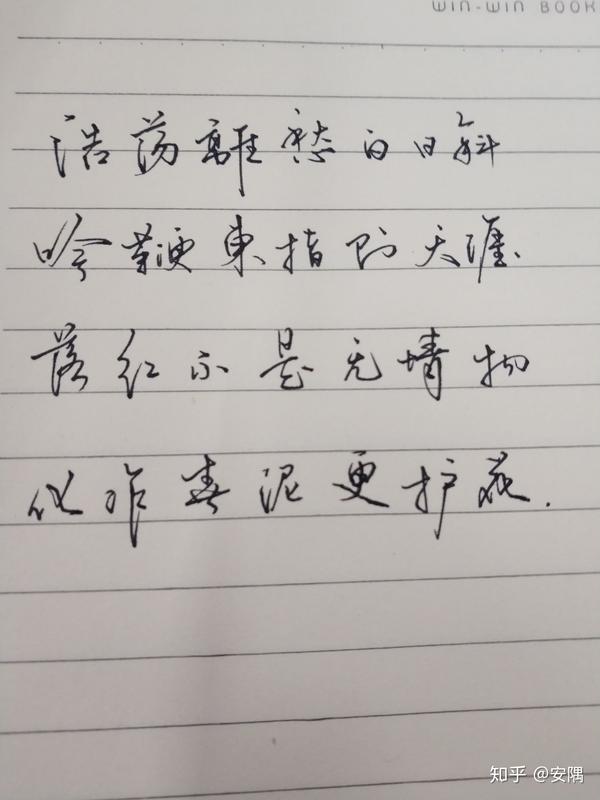 WIN-WIN BOOK
浩荡離愁白日斜
吟鞭東指即天涯
落红不是无情物
化作春泥更护花.
知乎 @安隅